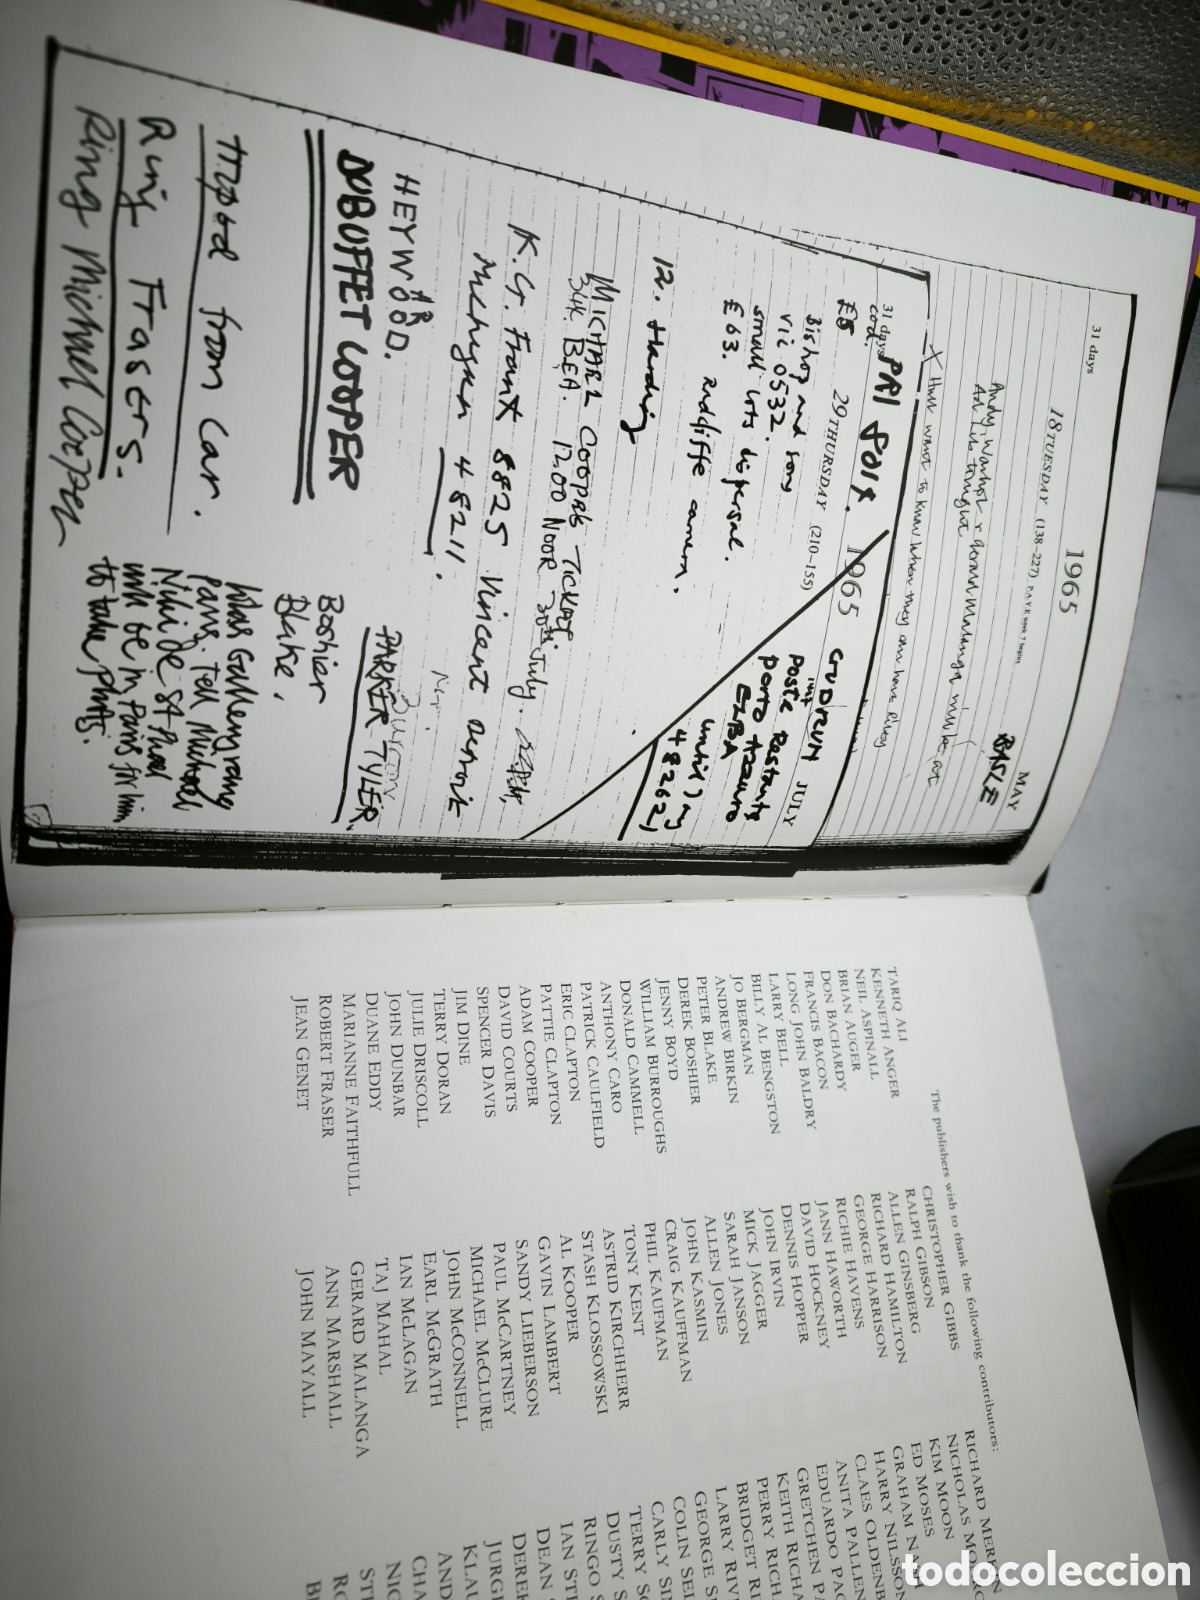 31 days
1965
MAY
18 TUESDAY (138-227)
BASLE
Andy Warhol & Gerard Malanga
X
want to know when they can have
31 days
1965
JULY
29 THURSDAY (210-155)
cod.
£5
Bishop and Sony
VIC 0532.
Small lots dispersal.
£63.
Poste Restante
Porto Azzurro
ELBA
until
48262
12. Harding
camera.
MICHAEL COOPER TICKET.
344. BEA. 12.00 NOON 30th July.
K.G. Frank 8825 Vincent
48211.
HEYWOOD.
PARKER TYLER.
DUBUFFET COOPER
Boshier
Blake,
from car.
Ring Frasers.
Ring Michael Cooper
Paris. Tell Michael
Niki de St Phal
will be in Paris for him
to take photos.
The publishers wish to thank the following contributors:
TARIQ ALI
KENNETH ANGER
NEIL ASPINALL
BRIAN AUGER
DON BACHARDY
FRANCIS BACON
LONG JOHN BALDRY
LARRY BELL
BILLY AL BENGSTON
JO BERGMAN
ANDREW BIRKIN
PETER BLAKE
DEREK BOSHIER
JENNY BOYD
WILLIAM BURROUGHS
DONALD CAMMELL
ANTHONY CARO
PATRICK CAULFIELD
ERIC CLAPTON
PATTIE CLAPTON
ADAM COOPER
DAVID COURTS
SPENCER DAVIS
JIM DINE
TERRY DORAN
JULIE DRISCOLL
JOHN DUNBAR
DUANE EDDY
MARIANNE FAITHFULL
ROBERT FRASER
JEAN GENET
CHRISTOPHER GIBBS
RALPH GIBSON
ALLEN GINSBERG
RICHARD HAMILTON
GEORGE HARRISON
RICHIE HAVENS
JANN HAWORTH
DAVID HOCKNEY
DENNIS HOPPER
JOHN IRVIN
MICK JAGGER
SARAH JANSON
ALLEN JONES
JOHN KASMIN
CRAIG KAUFFMAN
PHIL KAUFMAN
TONY KENT
ASTRID KIRCHHERR
STASH KLOSSOWSKI
AL KOOPER
GAVIN LAMBERT
SANDY LIEBERSON
PAUL MCCARTNEY
MICHAEL MCCLURE
JOHN MCCONNELL
EARL MCGRATH
IAN MCLAGAN
TAJ MAHAL
GERARD MALANGA
ANN MARSHALL
JOHN MAYALL
RICHARD
NICHOLAS
KIM MOON
ED MOSES
GRAHAM NASH
HARRY NILSSON
CLAES OLDENB
ANITA PALLEN
EDUARDO PAO
GRETCHEN PA
KEITH RICHA
PERRY RICHA
BRIDGET RI
LARRY RIV
GEORGE S
COLIN SEL
CARLY SI
TERRY SO
DUSTY S
RINGO S
IAN STE
DEAN S
DEREK
JURG
KLAU
AND
CHA
NIC
STE
RO
todocoleccion